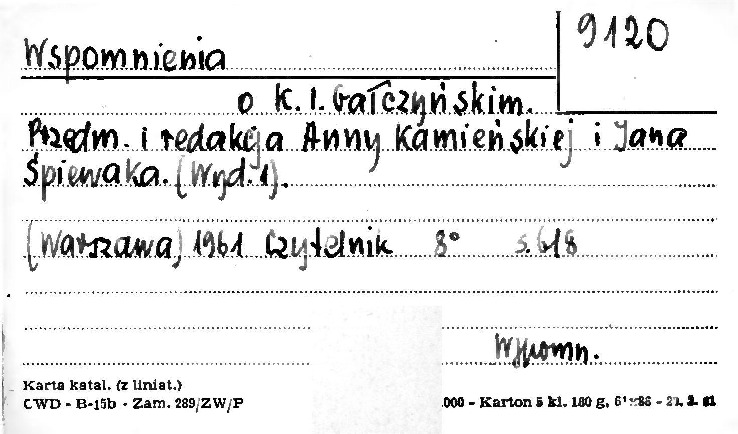 9120
Wspomnienia
o K. I. Gałczyńskim.
Przedm. i redakcja Anny Kamieńskiej i Jana
Śpiewaka. (Wyd. 1).
(Warszawa) 1961 Czytelnik 8° s. 618
Wspomn.
Karta katal. (z liniat.)
CWD - B-15b - Zam. 289/ZW/P
.000 - Karton 5 kl. 180 g,